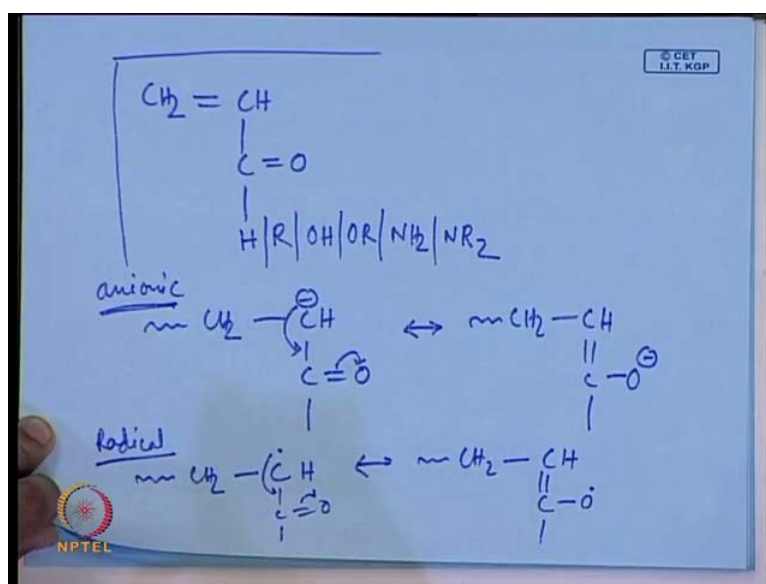 © CET
I.I.T. KGP
CH₂ = CH
|
C = O
|
H | R | OH | OR | NH₂ | NR₂
anionic
~~ CH₂ — CH ⊖ ↔ ~~ CH₂ — CH
| ||
C = O C — O ⊖
| |
Radical
~~ CH₂ — ĊH ↔ ~~ CH₂ — CH
| ||
C = O C — Ȯ
| |
NPTEL